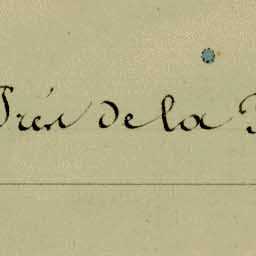 Trén de la